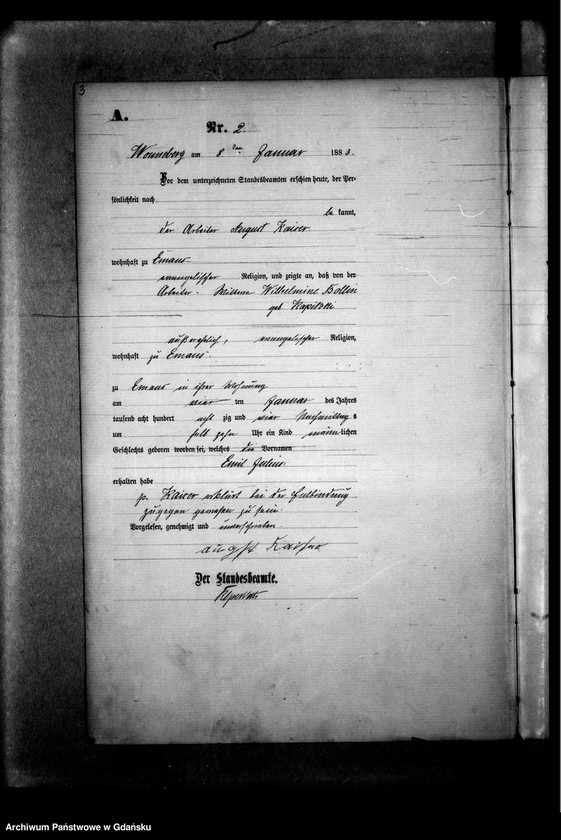 3
A.
Nr. 2
Wonneberg am 8ten Januar 1883.
Vor dem unterzeichneten Standesbeamten erschien heute, der Per-
sönlichkeit nach
be kannt,
der Arbeiter August Kaiser
wohnhaft zu Emaus
evangelischer Religion, und zeigte an, daß von der
Arbeiter-Wittwe Wilhelmine
geb.
außerehelich, evangelischer Religion,
wohnhaft zu Emaus
zu Emaus in ihrer Wohnung
am vier ten Januar des Jahres
tausend acht hundert acht zig und Nachmittag s
um halb zehn Uhr ein Kind männlichen
Geschlechts geboren worden sei, welches die Vornamen
Emil Julius
erhalten habe
p. Kaiser erklärt bei der Entbindung
zugegen gewesen zu sein.
Vorgelesen, genehmigt und unterschrieben
Der Standesbeamte.
Archiwum Państwowe w Gdańsku